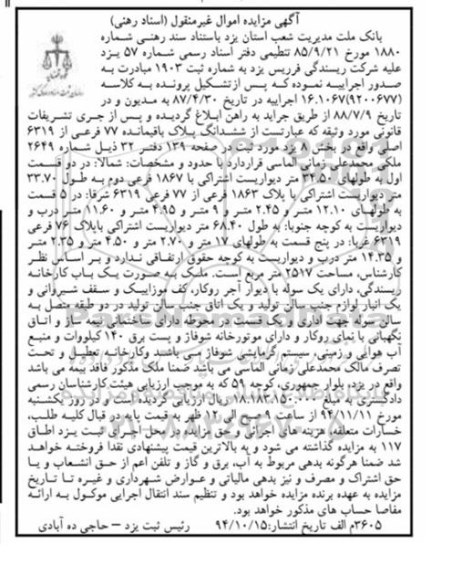 آگهی مزایده اموال غیرمنقول (اسناد رهنی)
بانک ملت مدیریت شعب استان یزد باستناد سند رهنی شماره
۱۸۸۰ مورخ ۸۵/۹/۲۱ تنظیمی دفتر اسناد رسمی شماره ۵۷ یزد
علیه شرکت ریسندگی فرریس یزد به شماره ثبت ۱۹۰۳ مبادرت به
صدور اجراییه نموده که پس از تشکیل پرونده به کلاسه
۱۶.۱۰۶۷(۹۲۰۰۶۷۷) اجراییه در تاریخ ۸۷/۴/۳۰ به مدیون و در
تاریخ ۸۸/۷/۹ از طریق جراید به راهن ابلاغ گردیده و پس از جری تشریفات
قانونی مورد وثیقه که عبارتست از ششدانگ پلاک باقیمانده ۷۷ فرعی از ۶۳۱۹
اصلی واقع در بخش ۸ یزد مورد ثبت در صفحه ۱۳۹ دفتر ۳۲ ذیل شماره ۲۶۴۹
ملکی محمدعلی زمانی الماسی قراردارد با حدود و مشخصات: شمالا: در دو قسمت
اول به طولهای ۳۲.۵۰ متر دیواریست اشتراکی با ۱۸۶۷ فرعی دوم به طول ۳۳.۷۰
متر دیواریست اشتراکی با پلاک ۱۸۶۳ فرعی از ۷۷ فرعی ۶۳۱۹ شرقا: در ۵ قسمت
به طولهای ۱۲.۱۰ متر و ۲.۴۵ متر و ۹ متر و ۴.۹۵ متر و ۱۱.۶۰ متر درب و
دیواریست به کوچه جنوبا: به طول ۶۸.۴۰ متر دیواریست اشتراکی باپلاک ۷۶ فرعی
۶۳۱۹ غربا: در پنج قسمت به طولهای ۱۷ متر و ۲.۷۰ متر و ۴.۵۰ متر و ۲.۳۵ متر
و ۱۴.۳۵ متر درب و دیواریست به کوچه حقوق ارتفاقی ندارد و بر اساس نظر
کارشناس، مساحت ۲۵۱۷ متر مربع است. ملک به صورت یک باب کارخانه
ریسندگی، دارای یک سوله با دیوار آجر روکار، کف موزاییک و سقف شیروانی و
یک انبار لوازم جنب سالن تولید و یک اتاق جنب سالن تولید در دو طبقه متصل به
سالن سوله جهت اداری و یک قسمت در محوطه دارای ساختمانی نیمه ساز و اتاق
نگهبانی با نمای روکار و دارای موتورخانه شوفاژ و پست برق ۱۴۰ کیلووات و منبع
آب هوایی و زمینی، سیستم گرمایشی شوفاژ می باشند وکارخانه تعطیل و تحت
تصرف مالک محمدعلی زمانی الماسی می باشد ضمنا ملک مذکور فاقد بیمه می باشد
واقع در یزد، بلوار جمهوری، کوچه ۵۹ که به موجب ارزیابی هیئت کارشناسان رسمی
دادگستری به مبلغ ۱۸.۱۸۳.۱۵۰.۰۰۰ ریال ارزیابی گردیده است و در روز یکشنبه
مورخ ۹۴/۱۱/۱۱ از ساعت ۹ صبح الی ۱۲ ظهر به قیمت پایه در قبال کلیه طلب،
خسارات متعلقه، هزینه های اجرائی و حق مزایده در محل اجرای ثبت یزد اطاق
۱۱۷ به مزایده گذاشته می شود و به بالاترین قیمت پیشنهادی نقدا فروخته خواهد
شد ضمنا هرگونه بدهی مربوط به آب، برق و گاز و تلفن اعم از حق انشعاب و یا
حق اشتراک و مصرف و نیز بدهی مالیاتی و عوارض شهرداری و غیره تا تاریخ
مزایده به عهده برنده مزایده خواهد بود و تنظیم سند انتقال اجرایی موکول به ارائه
مفاصا حساب های مذکور خواهد بود.
۳۶۰۵م الف تاریخ انتشار:۹۴/۱۰/۱۵ رئیس ثبت یزد – حاجی ده آبادی